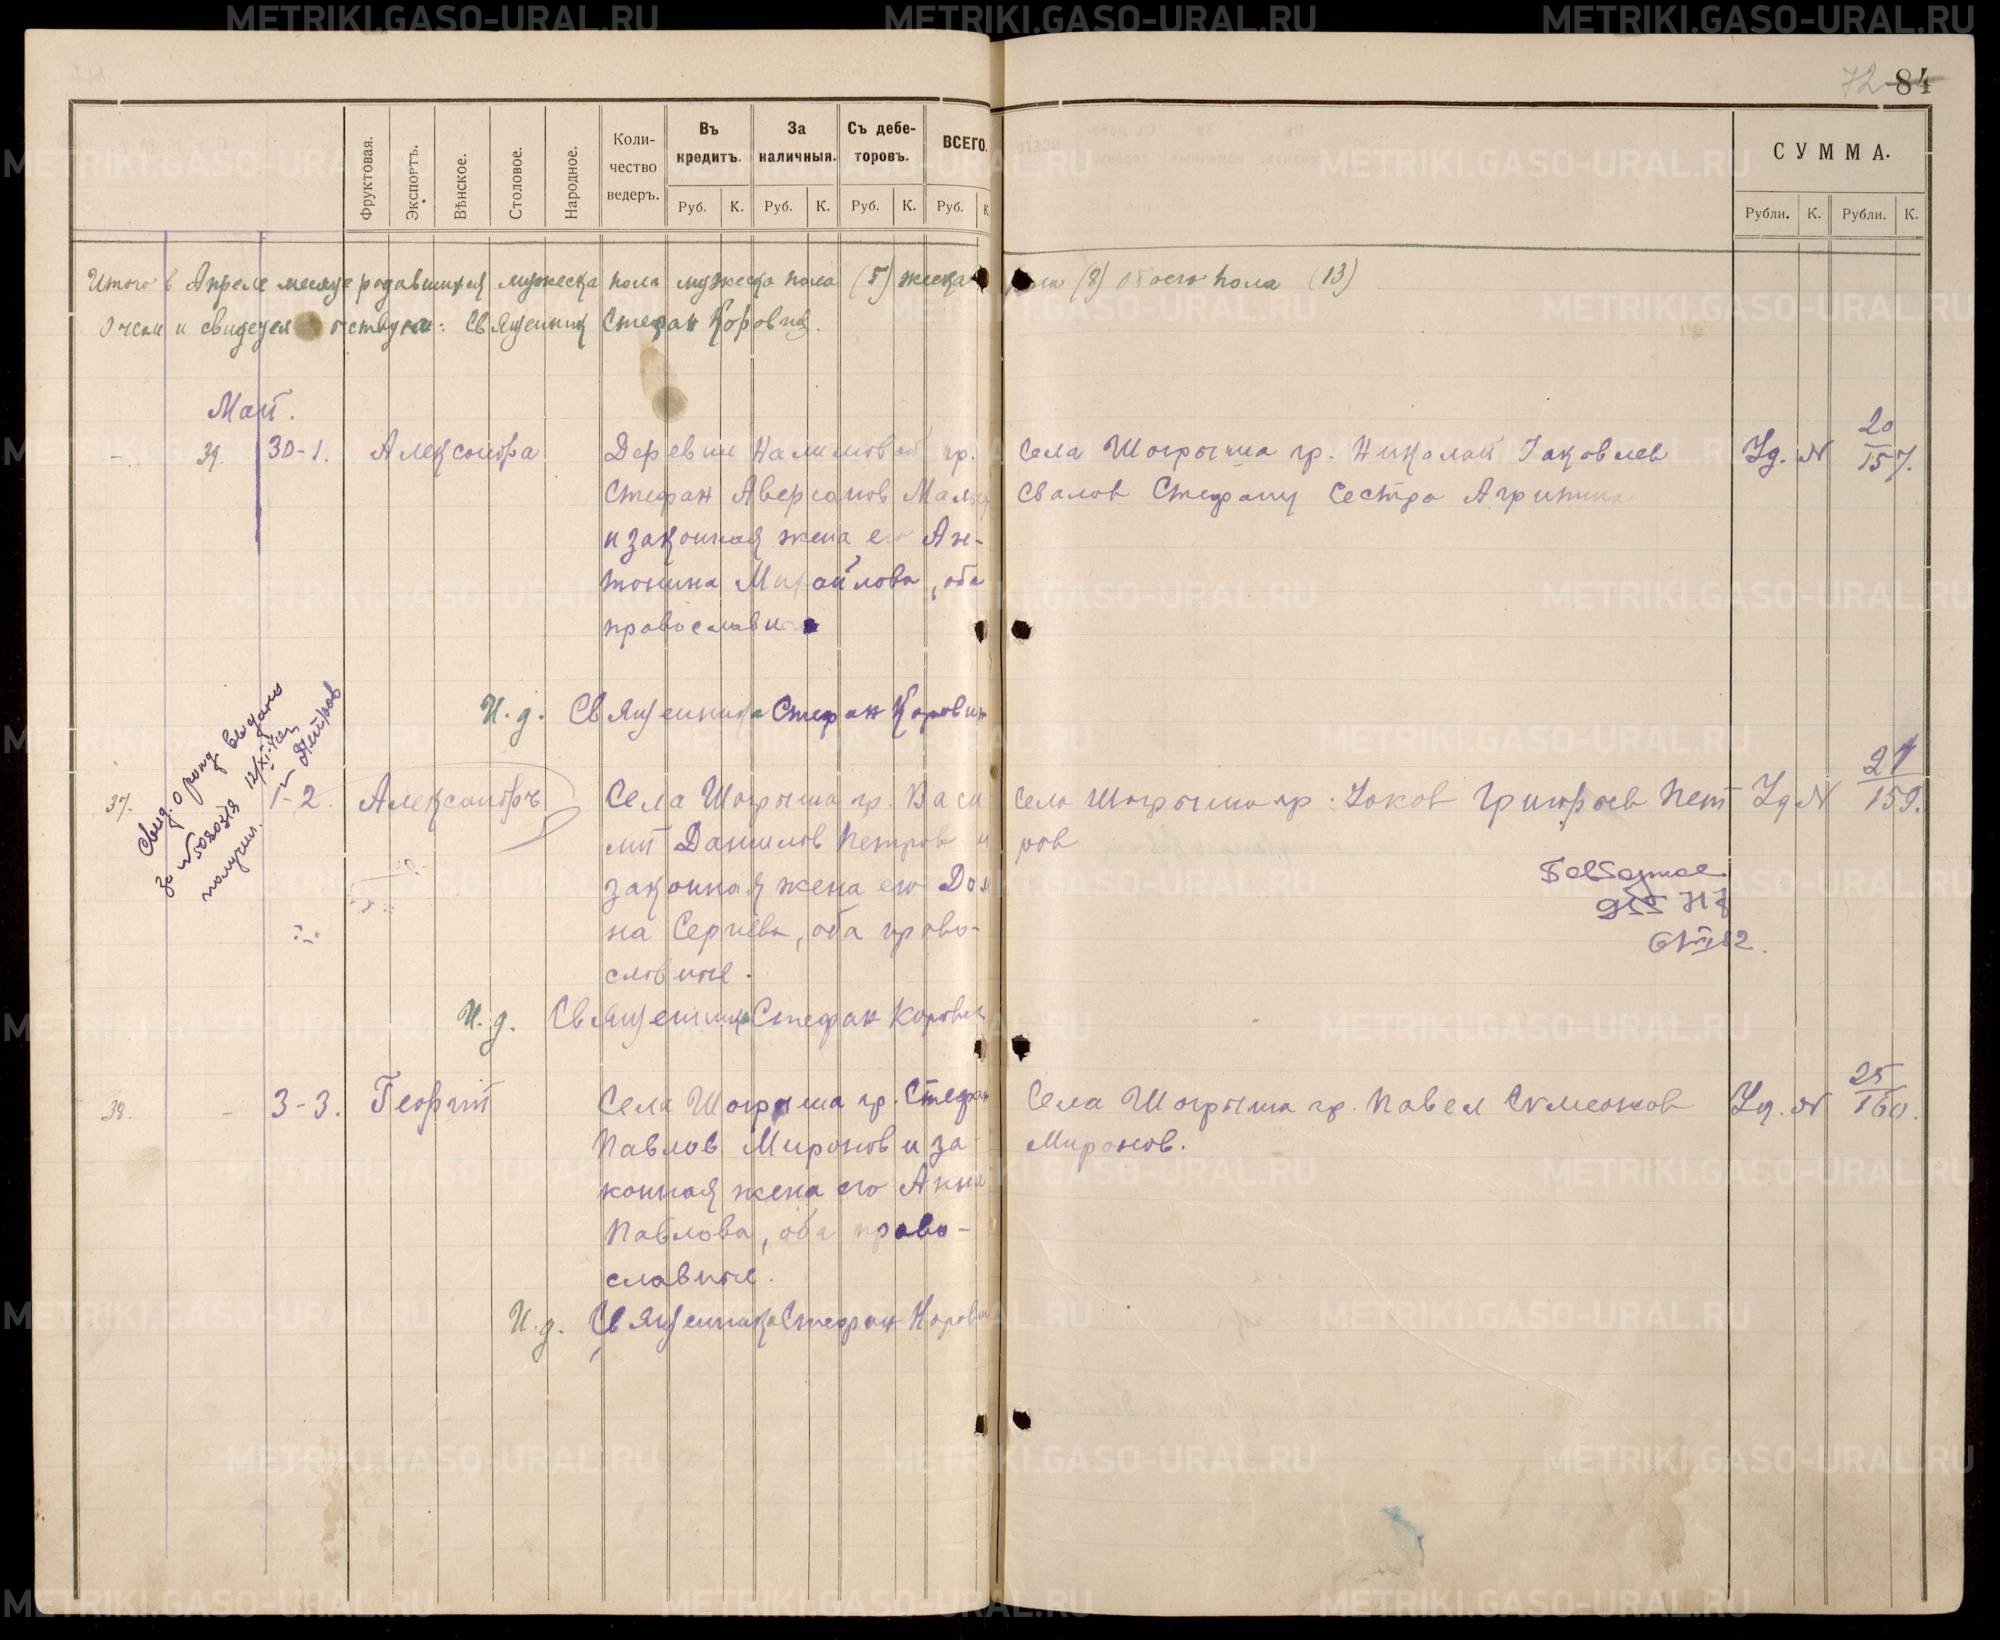 72 84
Фруктовая.
Экспортъ.
Вѣнское.
Столовое.
Народное.
Коли-
чество
ведеръ.
Въ
кредитъ.
За
наличныя.
Съ дебе-
торовъ.
ВСЕГО.
Руб. К. Руб. К. Руб. К. Руб. К
СУММА.
Рубли. К. Рубли. К.
Итого в Апреле месяце родавшихся мужеска пола мужеска пола (5) женска пола (8) обоего пола (13)
священник Стефан Коровин.
Май.
39. 30-1. Александра
Деревни Налимовой гр.
Стефан Аверьянов
и законная жена его Ан-
тонина Михайлова, оба
православные
Села Шогрыша гр. Николай Iаковлев
Свалов Стефану сестра Агрипина
Уд. N 20/157.
И.д. Священника Стефан Коровин
Свид. о рожд выдано
за N 5080318 12/XI-
получил. Петров
37. 1-2. Александръ
Села Шогрыша гр. Васи
лий Данилов Петров и
законная жена его Дом
на Сергiева, оба право-
славные.
Села Шогрыша гр. Iаков Григорьев Пет
ров
Уд N 159.
И.д. Священника Стефан Коровин
38. 3-3. Георгий
Села Шогрыша гр. Стефан
Павлов Миронов и за-
конная жена его Анна
Павлова, оба право-
славные.
Села Шогрыша гр. Павел Симеонов
Миронов.
Уд. N 25/160.
И.д. Священника Стефан Коровин